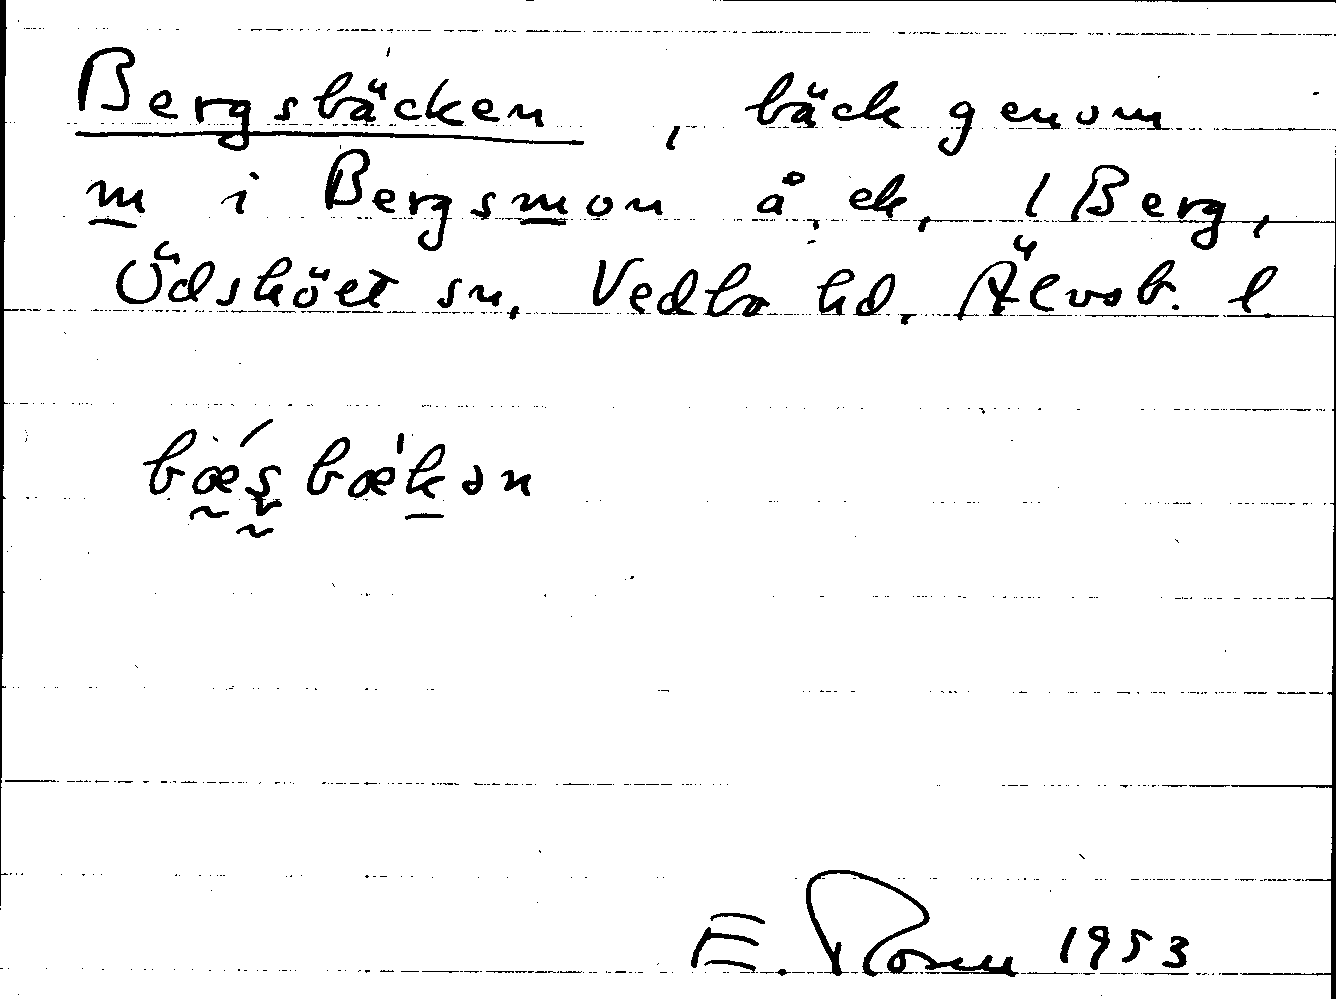 Bergsbäcken, bäck genom
m i Bergsmon å. ek. 1 Berg,
Ödsköet sn, Vedbo hd. Älvsb. l.
bǽşbæ'kən
E. Rosen 1953